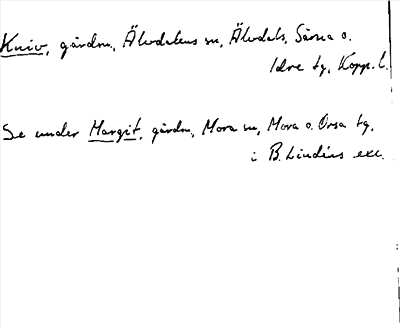 Kniv, gårdn, Älvdalens sn, Älvdals, Särna o.
Idre tg, Kopp. l.
Se under Margit, gårdn, Mora sn, Mora o. Orsa tg,
i B. Lindéns exc.